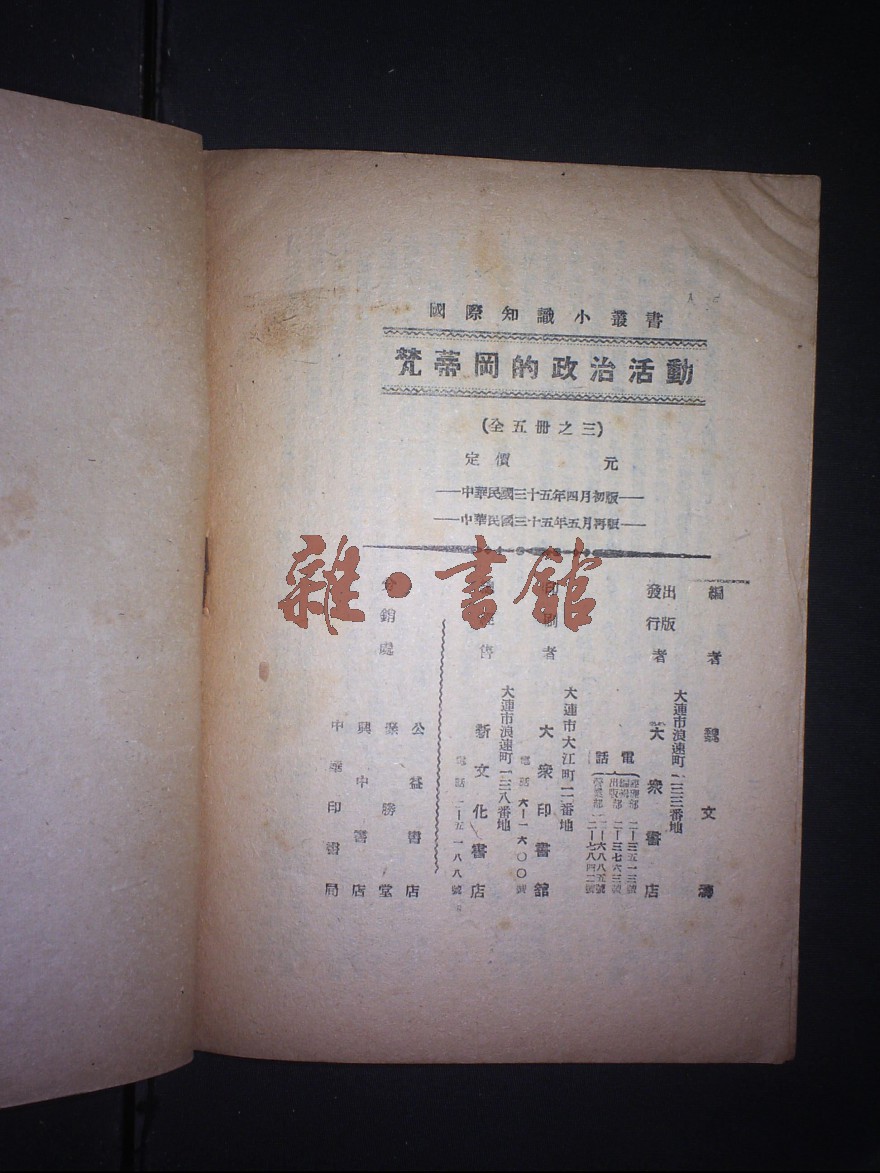 國際知識小叢書
梵蒂岡的政治活動
(全五冊之三)
定價 元
中華民國三十五年四月初版
中華民國三十五年五月再版
雜·書館
編者 魏文濤
出版
發行者
大連市浪速町一三三番地
大衆書店
電話
經理部 二—三五一三號
編輯部
出版部 二—三七六三號
營業部
刷者
大連市大江町一二番地
大衆印書館
電話 六—一六〇〇號
售
大連市浪速町一三八番地
新文化書店
電話 二—五一八八號
分銷處
公益書店
業勝堂
興中書店
中華印書局